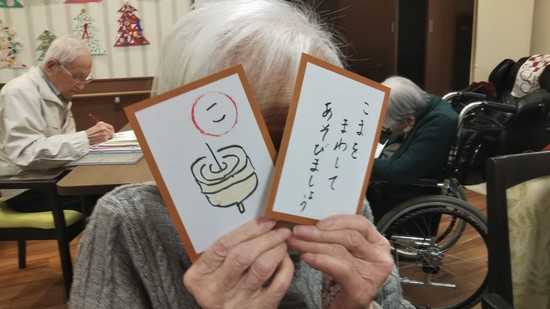 こ
こまを
まわして
あそびましょう